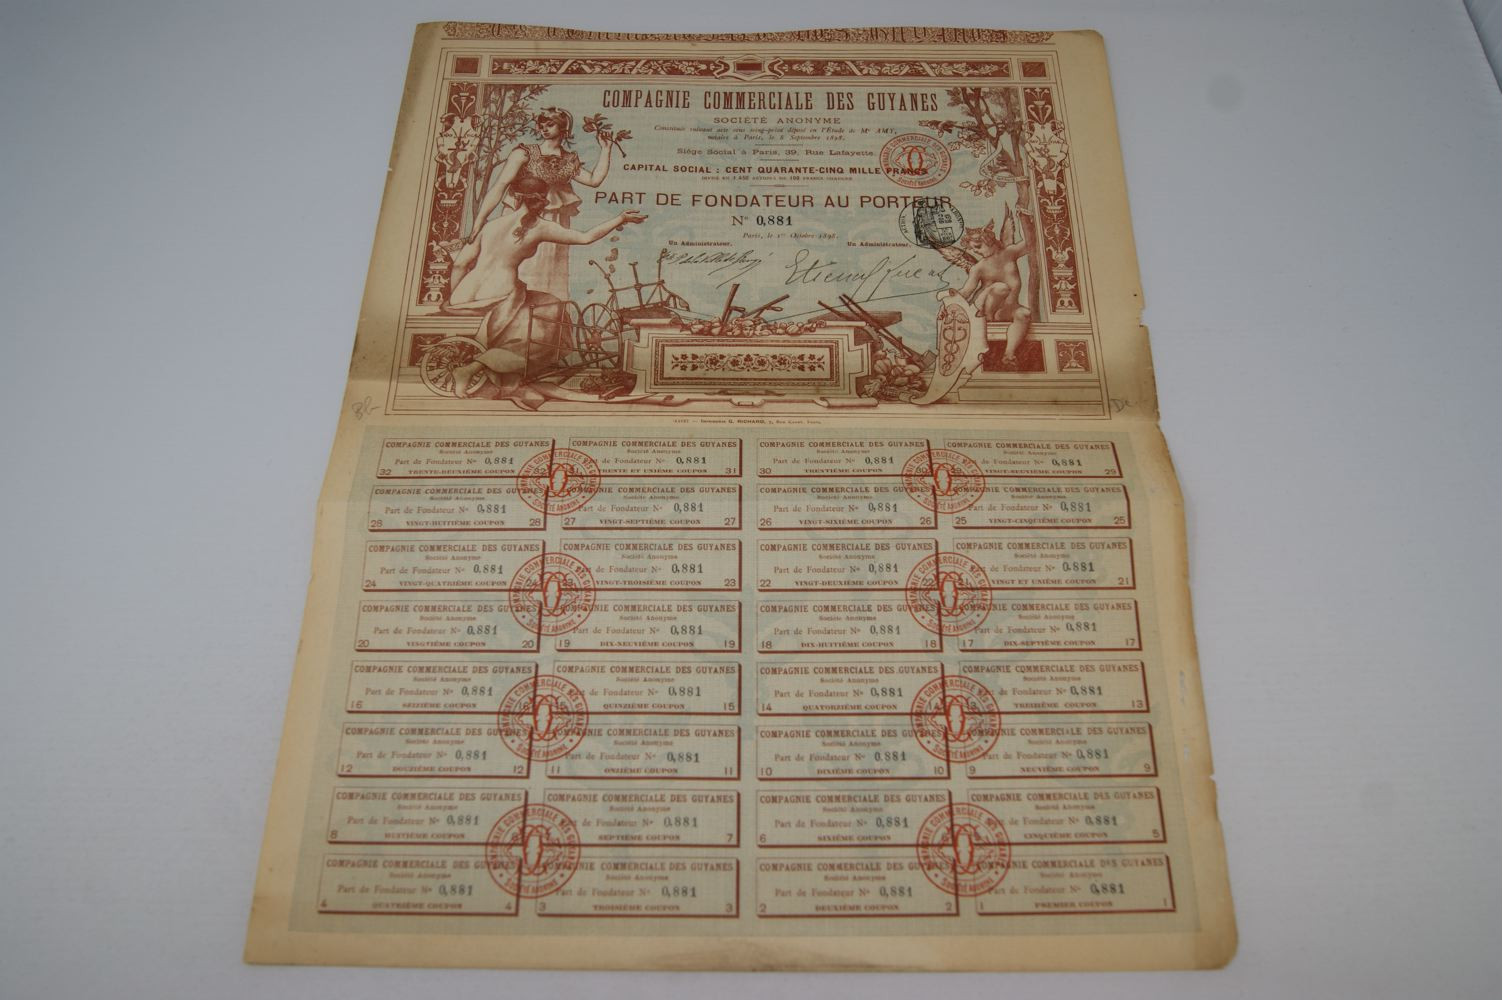 COMPAGNIE COMMERCIALE DES GUYANES
SOCIÉTÉ ANONYME
Constituée suivant acte sous seing-privé déposé en l'Étude de Me AMY,
notaire à Paris, le 8 Septembre 1898.
Siège Social à Paris, 39, Rue Lafayette.
CAPITAL SOCIAL : CENT QUARANTE-CINQ MILLE FRANCS
DIVISÉ EN 1.450 ACTIONS DE 100 FRANCS CHACUNE
PART DE FONDATEUR AU PORTEUR
No 0,881
Paris, le 1er Octobre 1898.
Un Administrateur, Un Administrateur,
COMPAGNIE COMMERCIALE DES GUYANES
Société Anonyme
Imprimerie G. RICHARD, 7, Rue Cadet, Paris.
COMPAGNIE COMMERCIALE DES GUYANES
Société Anonyme
Part de Fondateur No 0,881
32 TRENTE-DEUXIÈME COUPON 32
COMPAGNIE COMMERCIALE DES GUYANES
Société Anonyme
Part de Fondateur No 0,881
31 TRENTE ET UNIÈME COUPON 31
COMPAGNIE COMMERCIALE DES GUYANES
Société Anonyme
Part de Fondateur No 0,881
30 TRENTIÈME COUPON 30
COMPAGNIE COMMERCIALE DES GUYANES
Société Anonyme
Part de Fondateur No 0,881
29 VINGT-NEUVIÈME COUPON 29
COMPAGNIE COMMERCIALE DES GUYANES
Société Anonyme
Part de Fondateur No 0,881
28 VINGT-HUITIÈME COUPON 28
COMPAGNIE COMMERCIALE DES GUYANES
Société Anonyme
Part de Fondateur No 0,881
27 VINGT-SEPTIÈME COUPON 27
COMPAGNIE COMMERCIALE DES GUYANES
Société Anonyme
Part de Fondateur No 0,881
26 VINGT-SIXIÈME COUPON 26
COMPAGNIE COMMERCIALE DES GUYANES
Société Anonyme
Part de Fondateur No 0,881
25 VINGT-CINQUIÈME COUPON 25
COMPAGNIE COMMERCIALE DES GUYANES
Société Anonyme
Part de Fondateur No 0,881
24 VINGT-QUATRIÈME COUPON 24
COMPAGNIE COMMERCIALE DES GUYANES
Société Anonyme
Part de Fondateur No 0,881
23 VINGT-TROISIÈME COUPON 23
COMPAGNIE COMMERCIALE DES GUYANES
Société Anonyme
Part de Fondateur No 0,881
22 VINGT-DEUXIÈME COUPON 22
COMPAGNIE COMMERCIALE DES GUYANES
Société Anonyme
Part de Fondateur No 0,881
21 VINGT ET UNIÈME COUPON 21
COMPAGNIE COMMERCIALE DES GUYANES
Société Anonyme
Part de Fondateur No 0,881
20 VINGTIÈME COUPON 20
COMPAGNIE COMMERCIALE DES GUYANES
Société Anonyme
Part de Fondateur No 0,881
19 DIX-NEUVIÈME COUPON 19
COMPAGNIE COMMERCIALE DES GUYANES
Société Anonyme
Part de Fondateur No 0,881
18 DIX-HUITIÈME COUPON 18
COMPAGNIE COMMERCIALE DES GUYANES
Société Anonyme
Part de Fondateur No 0,881
17 DIX-SEPTIÈME COUPON 17
COMPAGNIE COMMERCIALE DES GUYANES
Société Anonyme
Part de Fondateur No 0,881
16 SEIZIÈME COUPON 16
COMPAGNIE COMMERCIALE DES GUYANES
Société Anonyme
Part de Fondateur No 0,881
15 QUINZIÈME COUPON 15
COMPAGNIE COMMERCIALE DES GUYANES
Société Anonyme
Part de Fondateur No 0,881
14 QUATORZIÈME COUPON 14
COMPAGNIE COMMERCIALE DES GUYANES
Société Anonyme
Part de Fondateur No 0,881
13 TREIZIÈME COUPON 13
COMPAGNIE COMMERCIALE DES GUYANES
Société Anonyme
Part de Fondateur No 0,881
12 DOUZIÈME COUPON 12
COMPAGNIE COMMERCIALE DES GUYANES
Société Anonyme
Part de Fondateur No 0,881
11 ONZIÈME COUPON 11
COMPAGNIE COMMERCIALE DES GUYANES
Société Anonyme
Part de Fondateur No 0,881
10 DIXIÈME COUPON 10
COMPAGNIE COMMERCIALE DES GUYANES
Société Anonyme
Part de Fondateur No 0,881
9 NEUVIÈME COUPON 9
COMPAGNIE COMMERCIALE DES GUYANES
Société Anonyme
Part de Fondateur No 0,881
8 HUITIÈME COUPON 8
COMPAGNIE COMMERCIALE DES GUYANES
Société Anonyme
Part de Fondateur No 0,881
SEPTIÈME COUPON 7
COMPAGNIE COMMERCIALE DES GUYANES
Société Anonyme
Part de Fondateur No 0,881
6 SIXIÈME COUPON 6
COMPAGNIE COMMERCIALE DES GUYANES
Société Anonyme
Part de Fondateur No 0,881
CINQUIÈME COUPON 5
COMPAGNIE COMMERCIALE DES GUYANES
Société Anonyme
Part de Fondateur No 0,881
4 QUATRIÈME COUPON 4
COMPAGNIE COMMERCIALE DES GUYANES
Société Anonyme
Part de Fondateur No 0,881
3 TROISIÈME COUPON 3
COMPAGNIE COMMERCIALE DES GUYANES
Société Anonyme
Part de Fondateur No 0,881
2 DEUXIÈME COUPON 2
COMPAGNIE COMMERCIALE DES GUYANES
Société Anonyme
Part de Fondateur No 0,881
1 PREMIER COUPON 1